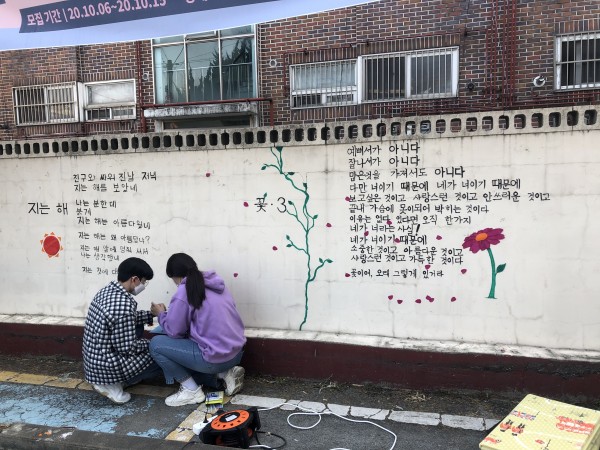 모집 기간 | 20.10.06~20.10.15
친구와 싸워 진 날 저녁
지는 해를 보았네
지는 해
나는 분한데
붉게
지는 해는 아름다웠네
지는 해는 왜 아름답니?
지는 해 앞에 멈춰 서서
나는 생각했네
지는 것에 대
꽃·3
예뻐서가 아니다
잘나서가 아니다
많은것을 가져서도 아니다
다만 너이기 때문에 네가 너이기 때문에
보고싶은 것이고 사랑스런 것이고 안쓰러운 것이고
끝내 가슴에 못이되어 박히는 것이다
이유는 없다 있다면 오직 한가지
네가 너라는 사실!
네가 너이기 때문에
소중한 것이고 아름다운 것이고
사랑스런 것이고 가득한 것이다
꽃이여, 오래 그렇게 있거라